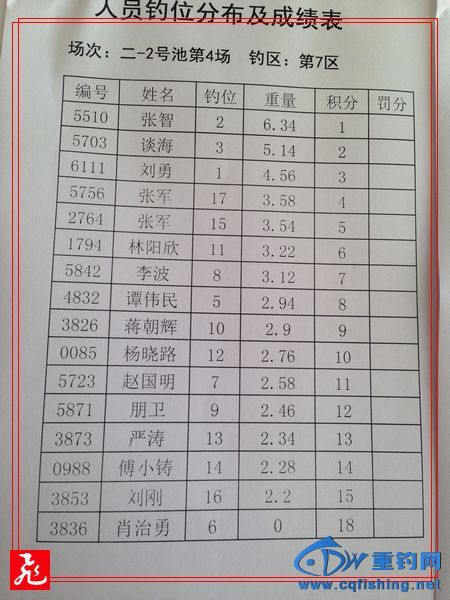 人员钓位分布及成绩表
场次：二-2号池第4场 钓区：第7区
编号 姓名 钓位 重量 积分 罚分
5510 张智 2 6.34 1
5703 谈海 3 5.14 2
6111 刘勇 1 4.56 3
5756 张军 17 3.58 4
2764 张军 15 3.54 5
1794 林阳欣 11 3.22 6
5842 李波 8 3.12 7
4832 谭伟民 5 2.94 8
3826 蒋朝辉 10 2.9 9
0085 杨晓路 12 2.76 10
5723 赵国明 7 2.58 11
5871 朋卫 9 2.46 12
3873 严涛 13 2.34 13
0988 傅小铸 14 2.28 14
3853 刘刚 16 2.2 15
3836 肖治勇 6 0 18
DW 重钓网
www.cqfishing.net